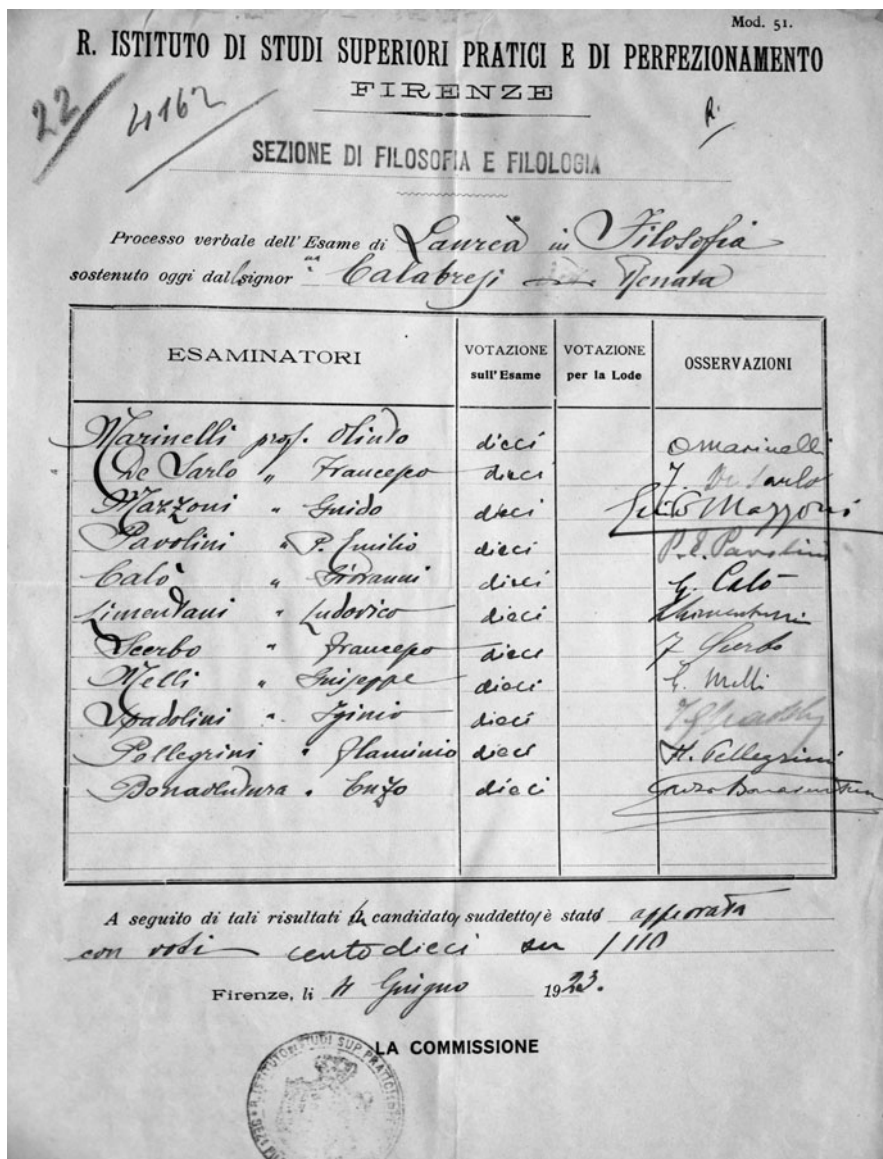 Mod. 51.
R. ISTITUTO DI STUDI SUPERIORI PRATICI E DI PERFEZIONAMENTO
FIRENZE
22
4162
R.
SEZIONE DI FILOSOFIA E FILOLOGIA
Processo verbale dell'Esame di Laurea in Filosofia
sostenuto oggi dalla signorina Calabresi Renata
ESAMINATORI VOTAZIONE sull'Esame VOTAZIONE per la Lode OSSERVAZIONI
Marinelli prof. Olinto dieci O Marinelli
De Sarlo " Francesco dieci F. De Sarlo
Mazzoni " Guido dieci Guido Mazzoni
Pavolini " P. Emilio dieci P. E. Pavolini
Calò " Giovanni dieci G. Calò
Limentani " Ludovico dieci Limentani
Scerbo " Francesco dieci F. Scerbo
Melli " Giuseppe dieci G. Melli
Spadolini " Iginio dieci
Pellegrini " Flaminio dieci Fl. Pellegrini
Bonaventura " Enzo dieci Enzo Bonaventura
A seguito di tali risultati la candidata suddetta è stata approvata
con voti centodieci su /110
Firenze, li 4 Giugno 1923.
LA COMMISSIONE